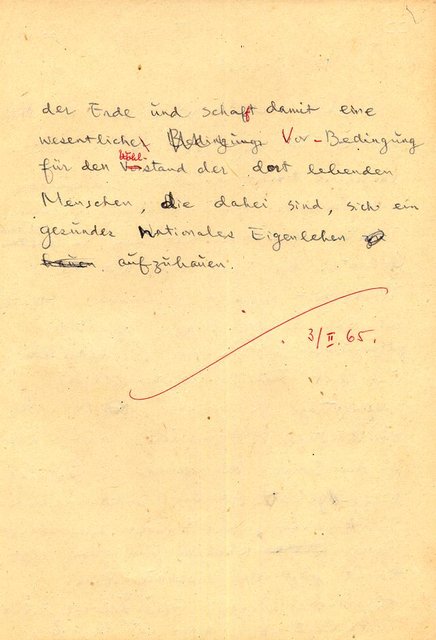 der Erde und schafft damit eine
wesentliche Vor-Bedingung
für den Wohl-stand der dort lebenden
Menschen, die dabei sind, sich ein
gesundes nationales Eigenleben
aufzubauen.
3/II.65.